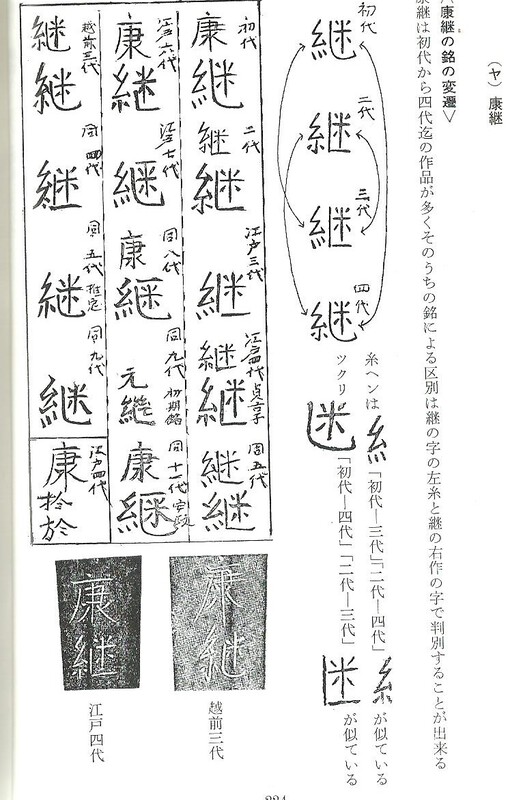 (ヤ) 康継
康継の銘の変遷＞
康継は初代から四代迄の作品が多くそのうちの銘による区別は継の字の左糸と継の右作の字で判別することが出来る
初代
継
二代
継
三代
継
四代
継
糸ヘンは 糸 「初代―三代」「二代―四代」 糸 が似ている
ツクリ 迷 「初代―四代」「二代―三代」 が似ている
初代
康
継
二代
継
継
江戸三代
継
江戸四代
継
継
同五代
継
継
江戸六代
康
継
江戸七代
継
同八代
康
継
同九代 初期銘
元
継
同十一代
康
継
越前三代
継
継
同四代
継
同五代
継
同九代
継
江戸四代
康
於
越前三代
康
継
江戸四代
康
継
224